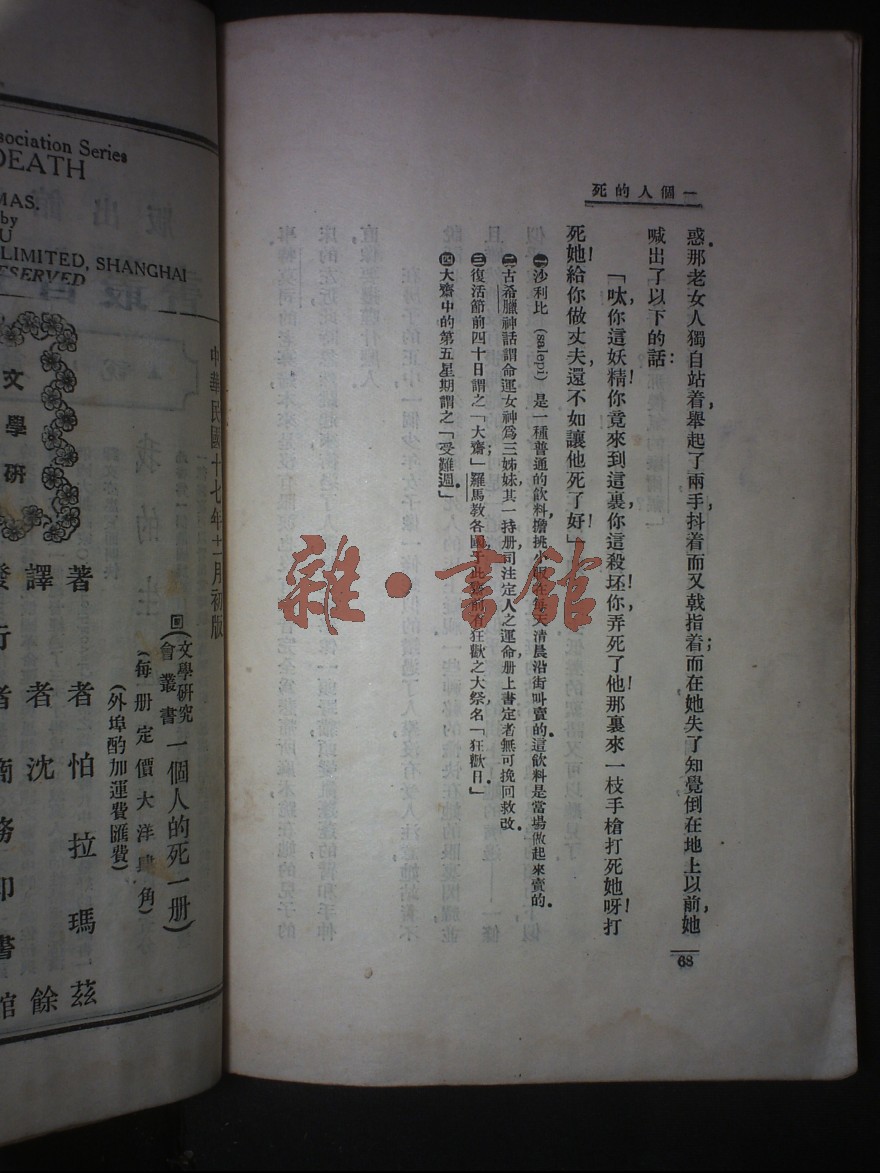 一個人的死
惑。那老女人獨自站着,舉起了兩手,抖着而又戟指着;而在她失了知覺倒在地上以前,她
喊出了以下的話:
「呔!你這妖精!你竟來到這裏!你這殺坯!你弄死了他!那裏來一枝手槍打死她呀!打
死她!給你做丈夫,還不如讓他死了好!」
㊀沙利比(salepi)是一種普通的飲料,擔挑小販在每天清晨沿街叫賣的。這飲料是當場做起來賣的。
㊁古希臘神話謂命運女神爲三姊妹,其一持册司注定人之運命,册上書定者無可挽回救改。
㊂復活節前四十日謂之「大齋」;羅馬教各國于此齋前有狂歡之大祭,名「狂歡日。」
㊃大齋中的第五星期謂之「受難週。」
68
sociation Series
DEATH
MAS.
by
U
LIMITED, SHANGHAI
ESERVED
中華民國十七年十二月初版
文學研究會叢書
一個人的死一册
(每册定價大洋肆角)
(外埠酌加運費匯費)
著者 怕拉瑪茲
譯者 沈 餘
發行者 商務印書館
文學研
雜·書館